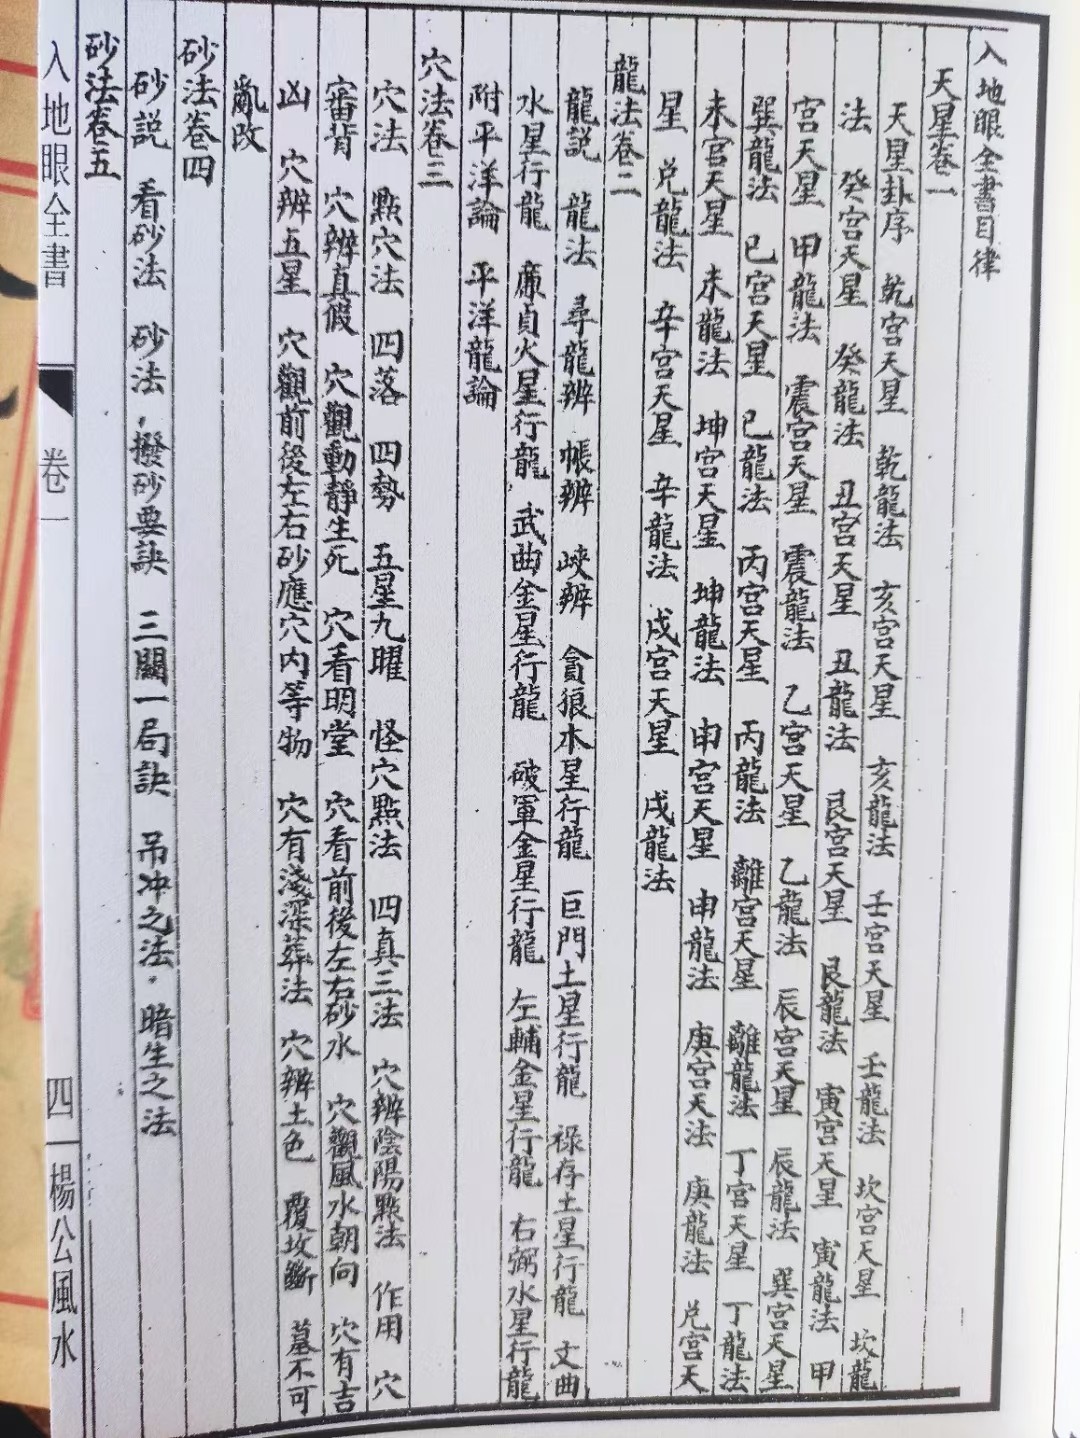 入地眼全書目律
天星卷一
天星卦序 乾宫天星 乾龍法 亥宫天星 亥龍法 壬宫天星 壬龍法 坎宫天星 坎龍
法 癸宫天星 癸龍法 丑宫天星 丑龍法 艮宫天星 艮龍法 寅宫天星 寅龍法 甲
宫天星 甲龍法 震宫天星 震龍法 乙宫天星 乙龍法 辰宫天星 辰龍法 巽宫天星
巽龍法 巳宫天星 巳龍法 丙宫天星 丙龍法 離宫天星 離龍法 丁宫天星 丁龍法
未宫天星 未龍法 坤宫天星 坤龍法 申宫天星 申龍法 庚宫天法 庚龍法 兑宫天
星 兑龍法 辛宫天星 辛龍法 戌宫天星 戌龍法
龍法卷二
龍説 龍法 尋龍辨 帳辨 峽辨 貪狼木星行龍 巨門土星行龍 祿存土星行龍 文曲
水星行龍 廉貞火星行龍 武曲金星行龍 破軍金星行龍 左輔金星行龍 右弼水星行龍
附平洋論 平洋龍論
穴法卷三
穴法 點穴法 四落 四勢 五星九曜 怪穴點法 四真三法 穴辨陰陽點法 作用 穴
審背 穴辨真假 穴觀動靜生死 穴看明堂 穴看前後左右砂水 穴觀風水朝向 穴有吉
凶 穴辨五星 穴觀前後左右砂應穴内等物 穴有淺深葬法 穴辨土色 覆坟斷 墓不可
亂改
砂法卷四
砂説 看砂法 砂法 撥砂要訣 三關一局訣 吊冲之法 暗生之法
砂法卷五
入地眼全書 卷一 四 楊公風水